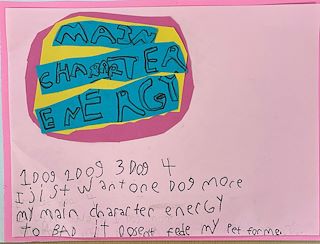 MAIN
CHARARTER
ENERGY
1 Dog 2 Dog 3 Dog 4
I jist want one Dog more
my main character energy
to BAD it Dosent fede my Pet for me.